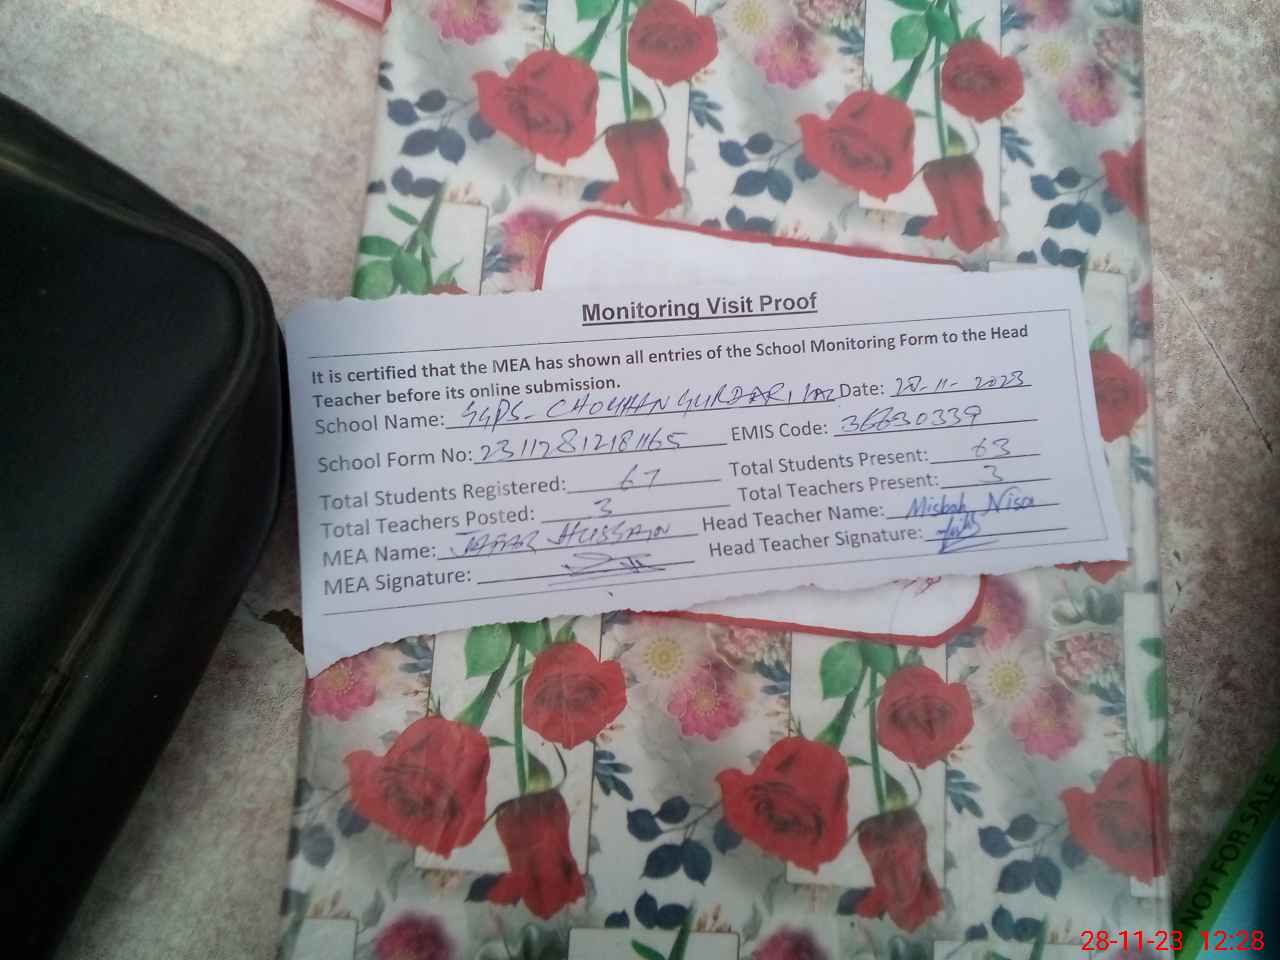 Monitoring Visit Proof
It is certified that the MEA has shown all entries of the School Monitoring Form to the Head
Teacher before its online submission.
School Name: GGPS- CHOUHAN GURDARI Date: 28-11-2023
School Form No: 23112812181165 EMIS Code: 36630339
Total Students Registered: 67 Total Students Present: 63
Total Teachers Posted: 3 Total Teachers Present: 3
MEA Name: JAFAR HUSSAIN Head Teacher Name: Misbah Nisa
MEA Signature: Head Teacher Signature:
NOT FOR SALE
28-11-23 12:28